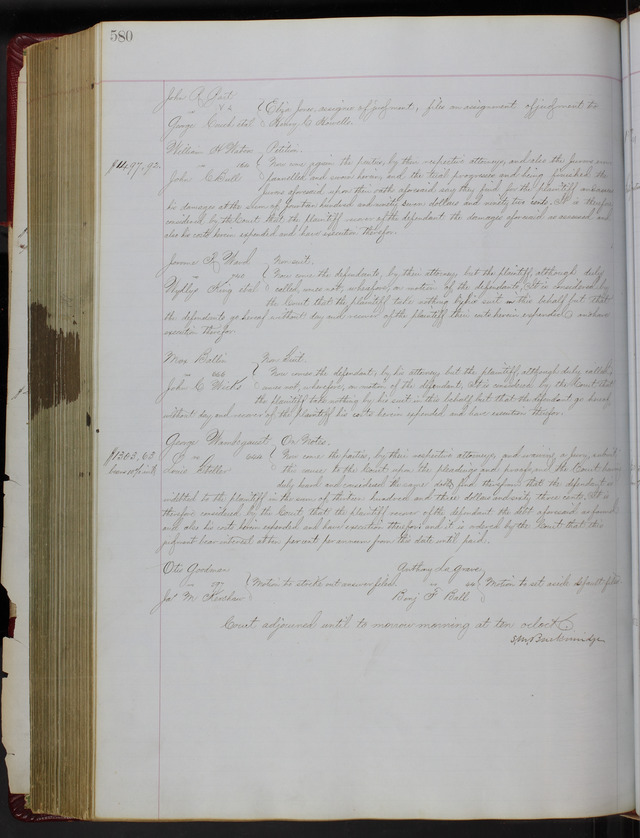 580
John R
vs
George et al
Eliza Jones, assignee of judgment, files an assignment of judgment to
Henry C
William H
vs
John C Bull
Petition.
$1497.92
Now come again the parties, by their respective attorneys, and also the jurors
empanelled and sworn herein, and the trial progresses and being finished the
jurors aforesaid upon their oaths aforesaid say they find for the plaintiff and assess
his damages at the sum of fourteen hundred and ninety seven dollars and ninety two cents. It is therefore
considered by the Court that the plaintiff recover of the defendant the damages aforesaid as assessed and
also his costs herein expended and have execution therefor.
F Ward
vs
King et al
Non suit.
Now come the defendants, by their attorney but the plaintiff, although duly
called, comes not, wherefore, on motion of the defendants, It is considered by
the Court that the plaintiff take nothing by his suit in this behalf but that
the defendants go hence without day and recover of the plaintiff their costs herein expended and have
execution therefor
vs
John C
Non Suit.
Now comes the defendant, by his attorney but the plaintiff, although duly called
comes not, wherefore, on motion of the defendant, It is considered by the Court that
the plaintiff take nothing by his suit in this behalf but that the defendant go hence
without day and recover of the plaintiff his costs herein expended and have execution therefor.
George
vs
On Notes.
$1303.63
Now come the parties, by their respective attorneys, and waiving a jury, submit
this cause to the Court upon the pleadings and proofs, and the Court having
duly heard and considered the same doth find therefrom that the defendant is
indebted to the plaintiff in the sum of thirteen hundred and three dollars and sixty three cents. It is
therefore considered by the Court, that the plaintiff recover of the defendant the debt aforesaid as found
and also his costs herein expended and have execution therefor and it is ordered by the Court that this
judgment bear interest at ten per cent per annum from this date until paid.
Otis Goodman
vs
Jas M
Motion to strike out answer filed
Anthony
vs
Benj F Ball
Motion to set aside default filed
Court adjourned until to morrow morning at ten oclock
S. M. Breckinridge